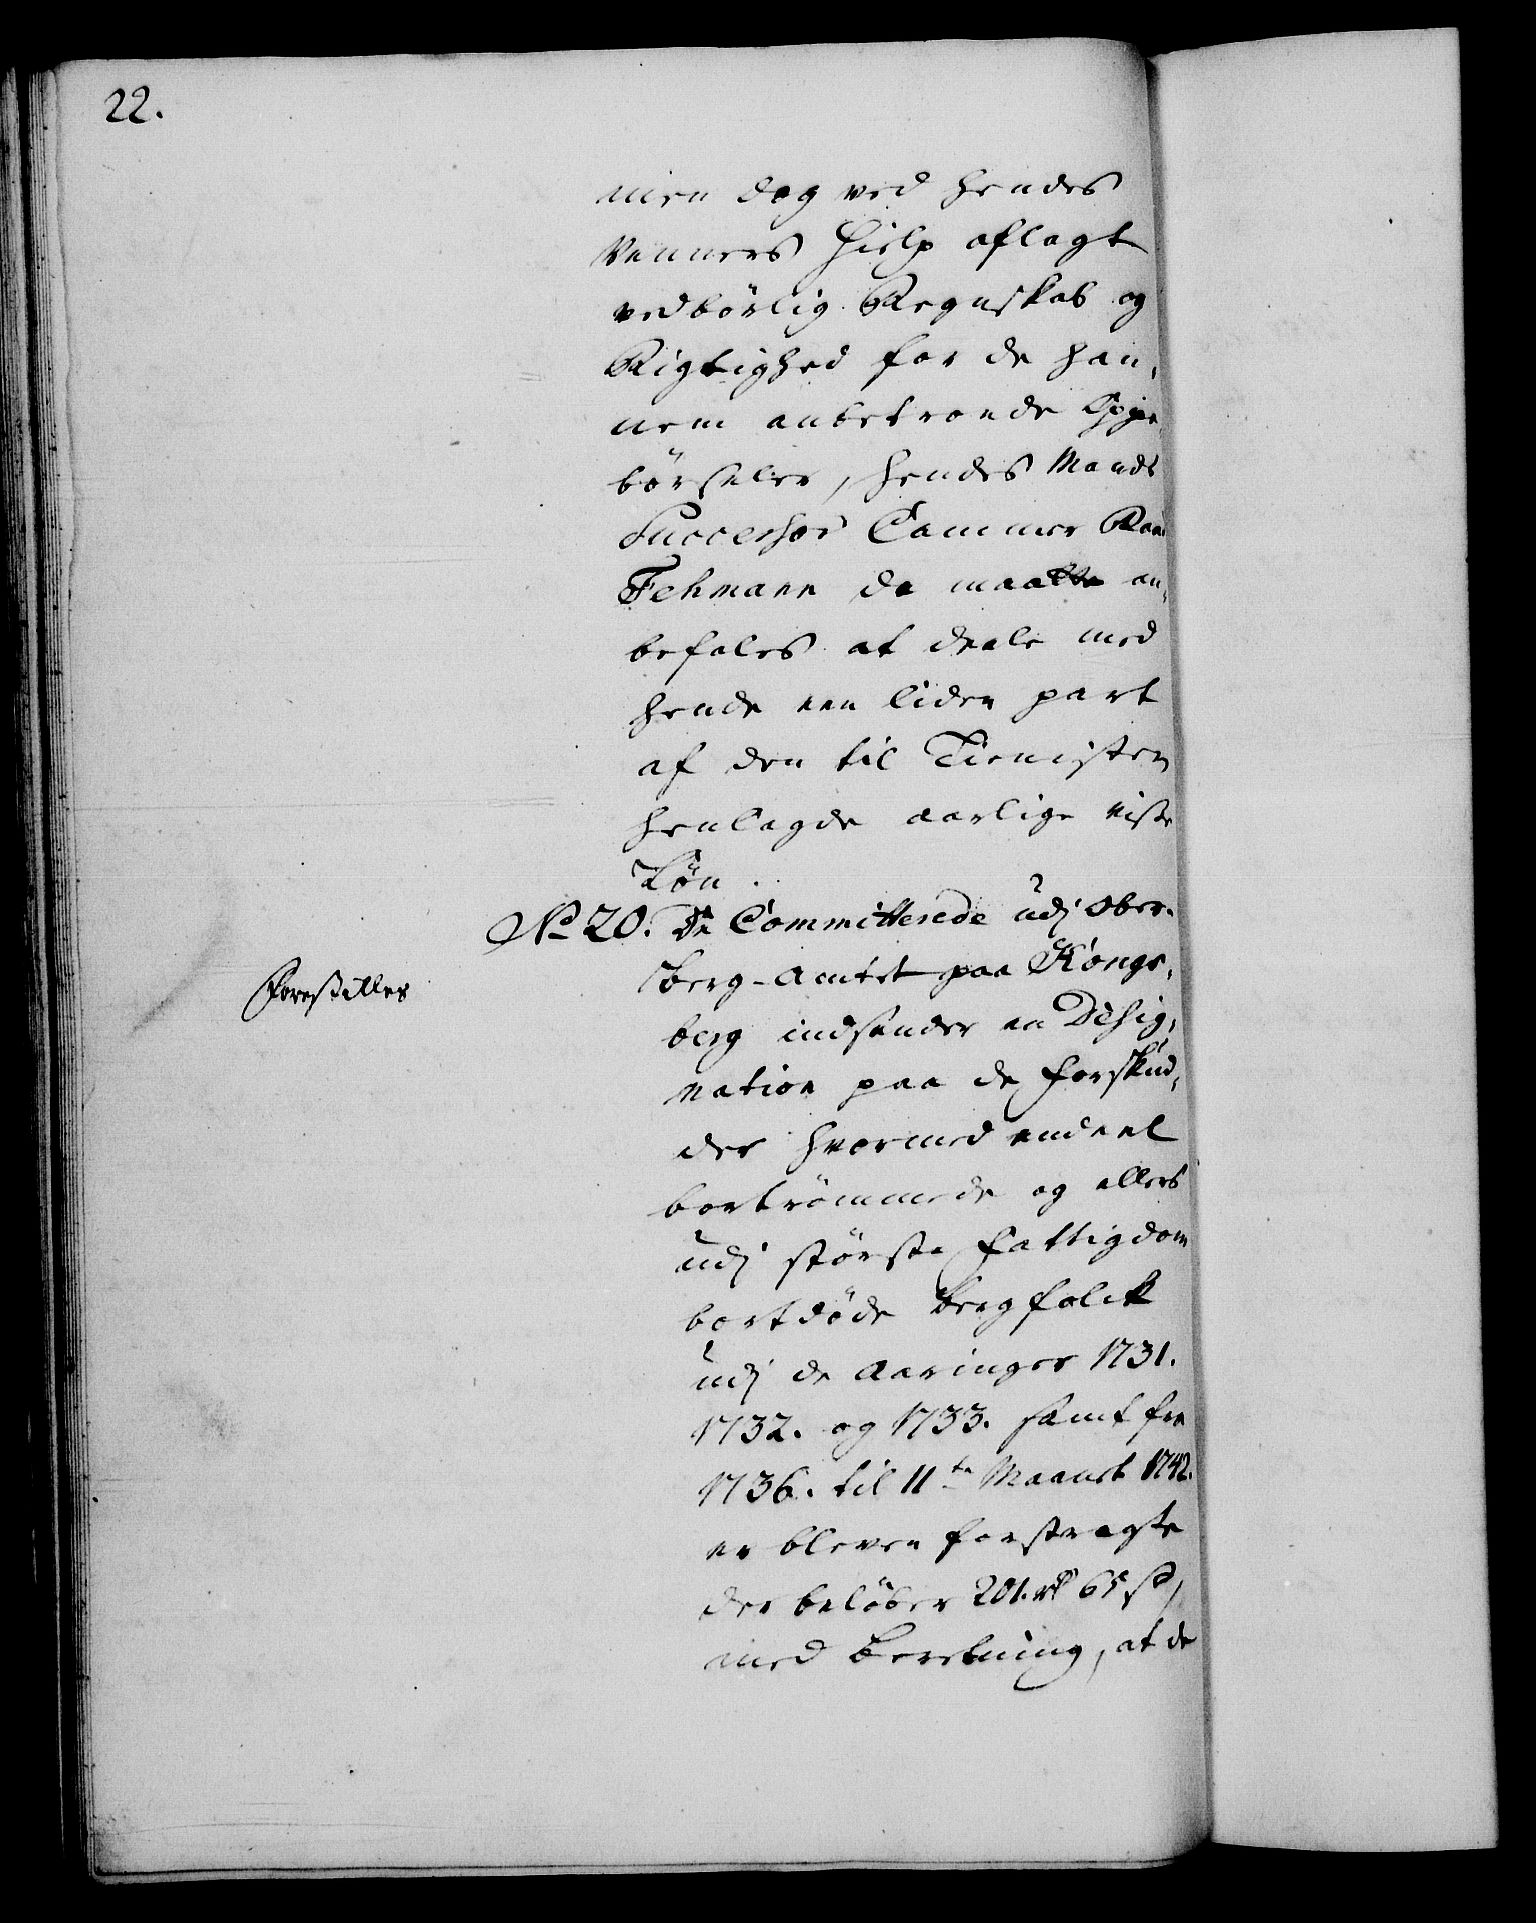 22.
men dog ved hendes
Venners Hielp aflagt
vedbörlig Regnskab og
Rigtighed for de han,
nem anbetroede Oppe,
börseler, hendes Mands
Successor Cammer Raad
Fehmann da maatte an,
befales at deele med
hende een liden part
af den til Tienisten
henlagde aarlige visse
Lön.
No 20. De Committerede udj Ober-
berg-Amtet paa Kongs,
Forestilles
berg indsender en Desig,
nation paa de Forskud,
der hvormed endeel
bortrömmede og ellers
udj störste Fattigdom
bortdöde Bergfolck
udj de Aaringer 1731.
1732. og 1733. samt fra
1736. til 11te Maanet 1742.
er bleven forstragte
der belöber 201. rd 65 sk,
med Beretning, at de